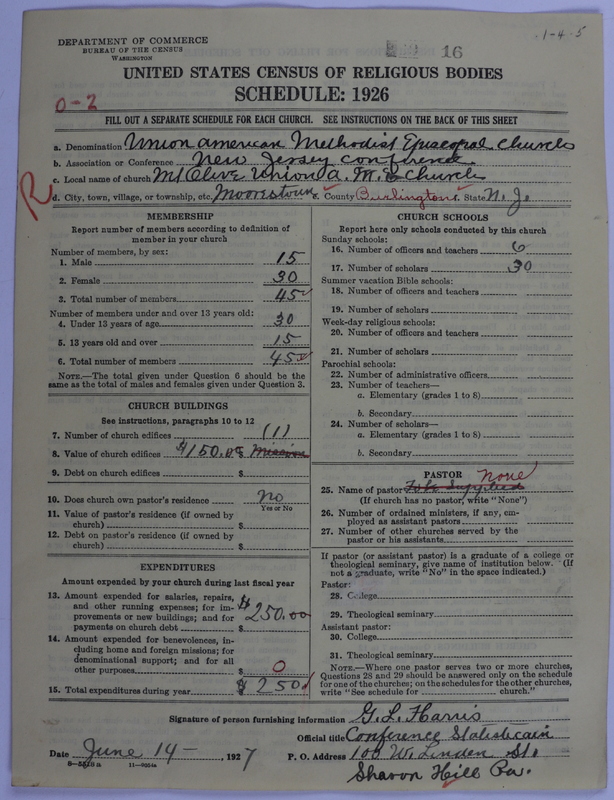 1-4-5
16
DEPARTMENT OF COMMERCE
BUREAU OF THE CENSUS
WASHINGTON
UNITED STATES CENSUS OF RELIGIOUS BODIES
SCHEDULE: 1926
0-2
FILL OUT A SEPARATE SCHEDULE FOR EACH CHURCH. SEE INSTRUCTIONS ON THE BACK OF THIS SHEET
R
a. Denomination Union american Methodist Episcopal Church
b. Association or Conference New Jersey conference
c. Local name of church Mt Olive Union a. M. E Church
d. City, town, village, or township, etc. Moorestown e. County Burlington f. State N. J.
MEMBERSHIP
Report number of members according to definition of
member in your church
Number of members, by sex:
1. Male 15
2. Female 30
3. Total number of members 45
Number of members under and over 13 years old:
4. Under 13 years of age 30
5. 13 years old and over 15
6. Total number of members 45
NOTE.—The total given under Question 6 should be
the same as the total of males and females given under Question 3.
CHURCH BUILDINGS
See instructions, paragraphs 10 to 12
7. Number of church edifices (1)
8. Value of church edifices $150.00 $ Mission
9. Debt on church edifices $
10. Does church own pastor's residence No
Yes or No
11. Value of pastor's residence (if owned by
church) $
12. Debt on pastor's residence (if owned by
church) $
EXPENDITURES
Amount expended by your church during last fiscal year
13. Amount expended for salaries, repairs,
and other running expenses; for im-
provements or new buildings; and for
payments on church debt $ $250.00
14. Amount expended for benevolences, in-
cluding home and foreign missions; for
denominational support; and for all
other purposes $ 0
15. Total expenditures during year $ $250
CHURCH SCHOOLS
Report here only schools conducted by this church
Sunday schools:
16. Number of officers and teachers 6
17. Number of scholars 30
Summer vacation Bible schools:
18. Number of officers and teachers
19. Number of scholars
Week-day religious schools:
20. Number of officers and teachers
21. Number of scholars
Parochial schools:
22. Number of administrative officers
23. Number of teachers—
a. Elementary (grades 1 to 8)
b. Secondary
24. Number of scholars—
a. Elementary (grades 1 to 8)
b. Secondary
PASTOR
None
25. Name of pastor To be Supplied
(If church has no pastor, write "None")
26. Number of ordained ministers, if any, em-
ployed as assistant pastors
27. Number of other churches served by the
pastor or his assistants
If pastor (or assistant pastor) is a graduate of a college or
theological seminary, give name of institution below. (If
not a graduate, write "No" in the space indicated.)
Pastor:
28. College
29. Theological seminary
Assistant pastor:
30. College
31. Theological seminary
NOTE.—Where one pastor serves two or more churches,
Questions 28 and 29 should be answered only on the schedule
for one of the churches; on the schedules for the other churches,
write "See schedule for church."
Signature of person furnishing information G. L. Harris
Official title Conference Statisticain
Date June 14- , 1927 P. O. Address 100 W. Linden St.
8-5518a 11-9054a
Sharon Hill Pa.